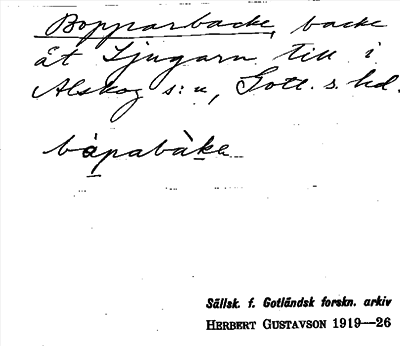 Bopparbacke, backe
åt Ljugarn till i
Alskog s:n, Gotl. s. hd.
båpabàka
Sällsk. f. Gotländsk forskn. arkiv
HERBERT GUSTAVSON 1919—26